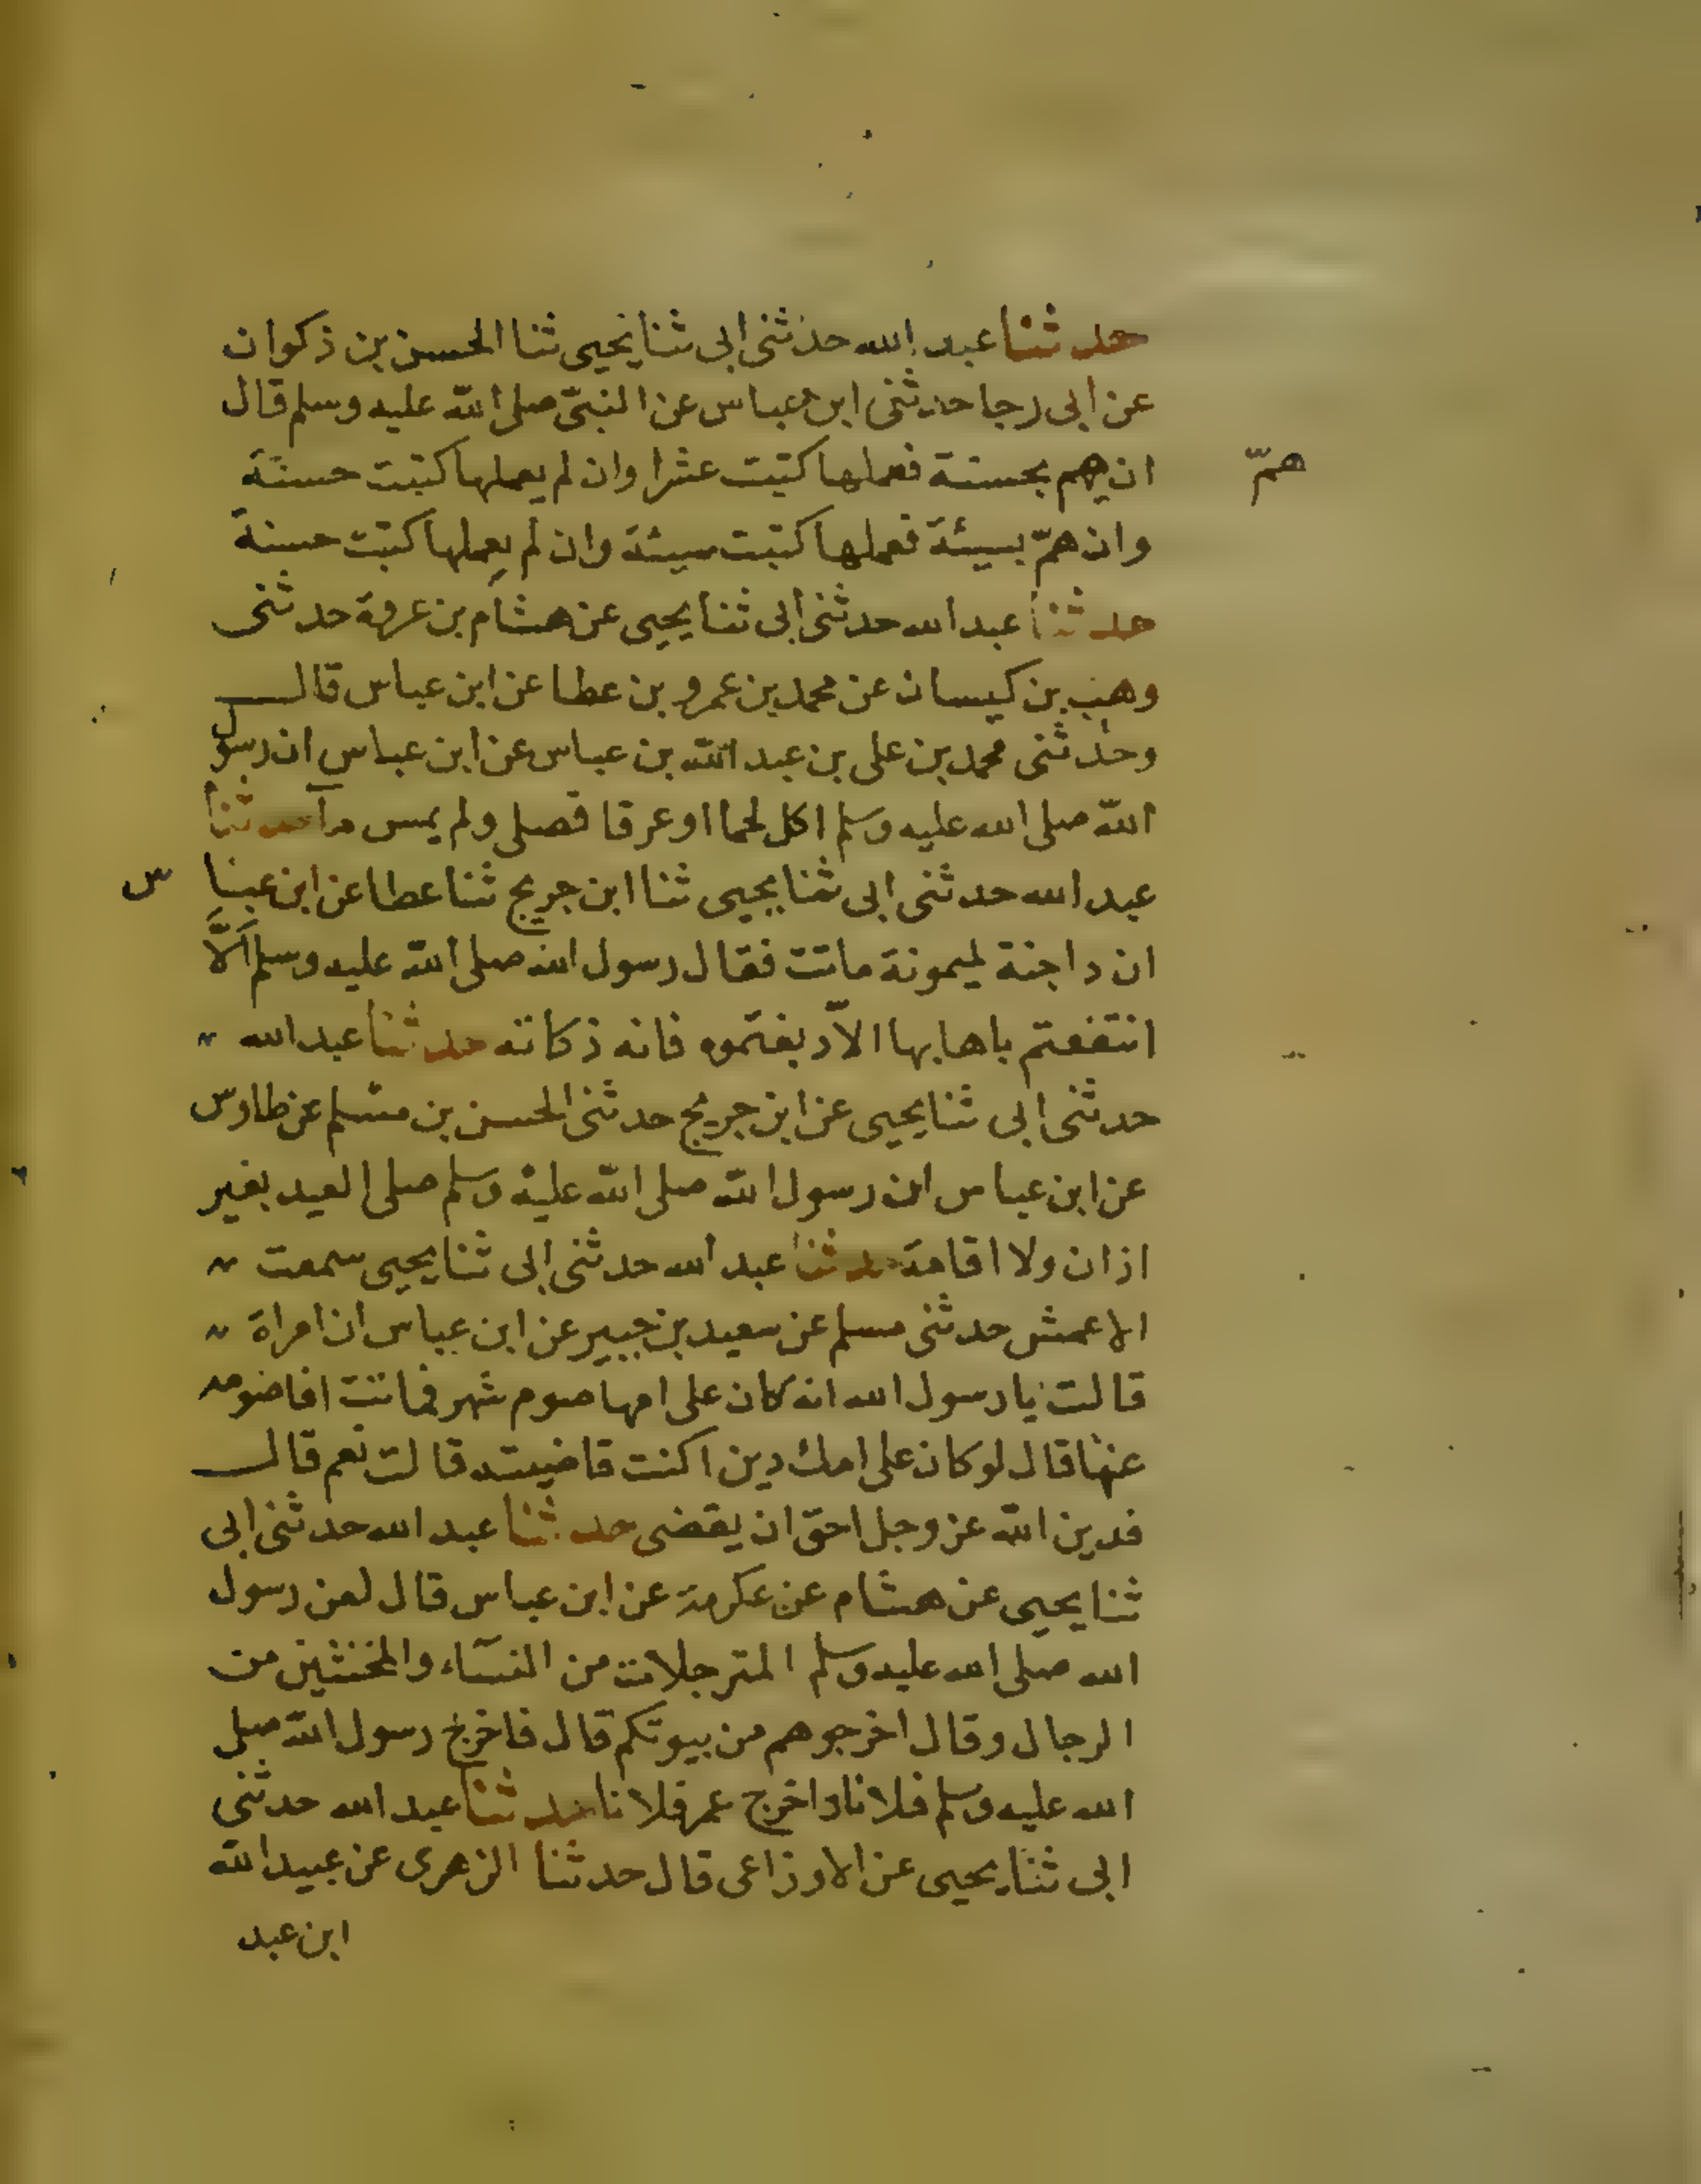 حدثنا عبد الله حدثنى ابى ثنا يحيى ثنا الحسن بن ذكوان
عن ابى رجا حدثنى ابن عباس عن النبىّ صلى الله عليه وسلم قال
ان يهم بحسنة فعملها كتبت عشرا وان لم يعملها كتبت حسنة
همّ
وان همّ بسيئة فعملها كتبت سيئة وان لم يعملها كتبت حسنة
حدثنا عبد الله حدثنى ابى ثنا يحيى عن هشام بن عروة حدثنى
وهب بن كيسان عن محمد بن عمرو بن عطا عن ابن عباس قال
وحدثنى محمد بن على بن عبد الله بن عباس عن ابن عباس ان رسول
الله صلى الله عليه وسلم اكل لحما او عرقا فصلى ولم يمس مآ حدثنا
عبد الله حدثنى ابى ثنا يحيى ثنا ابن جريج ثنا عطا عن ابن عباس
ان داجنة لميمونة ماتت فقال رسول الله صلى الله عليه وسلم ألّا
انتفعتم باهابها الاّ دبغتموه فانه ذكاته حدثنا عبد الله
حدثنى ابى ثنا يحيى عن ابن جريج حدثنى الحسن بن مسلم عن طاوس
عن ابن عباس ان رسول الله صلى الله عليه وسلم صلى العيد بغير
اذان ولا اقامة حدثنا عبد الله حدثنى ابى ثنا يحيى سمعت
الاعمش حدثنى مسلم عن سعيد بن جبير عن ابن عباس ان امراة
قالت يا رسول الله انه كان على امها صوم شهر فماتت افاضومه
عنها قال لو كان على امك دين اكنت قاضيته قالت نعم قال
فدين الله عز وجل احق ان يقضى حدثنا عبد الله حدثنى ابى
ثنا يحيى عن هشام عن عكرمة عن ابن عباس قال لعن رسول
الله صلى الله عليه وسلم المترجلات من النسآء والمخنثين من
الرجال وقال اخرجوهم من بيوتكم قال فاخرج رسول الله صلى
الله عليه وسلم فلانا واخرج عمر فلانا حدثنا عبد الله حدثنى
ابى ثنا يحيى عن الاوزاعى قال حدثنا الزهرى عن عبيد الله
ابن عبد